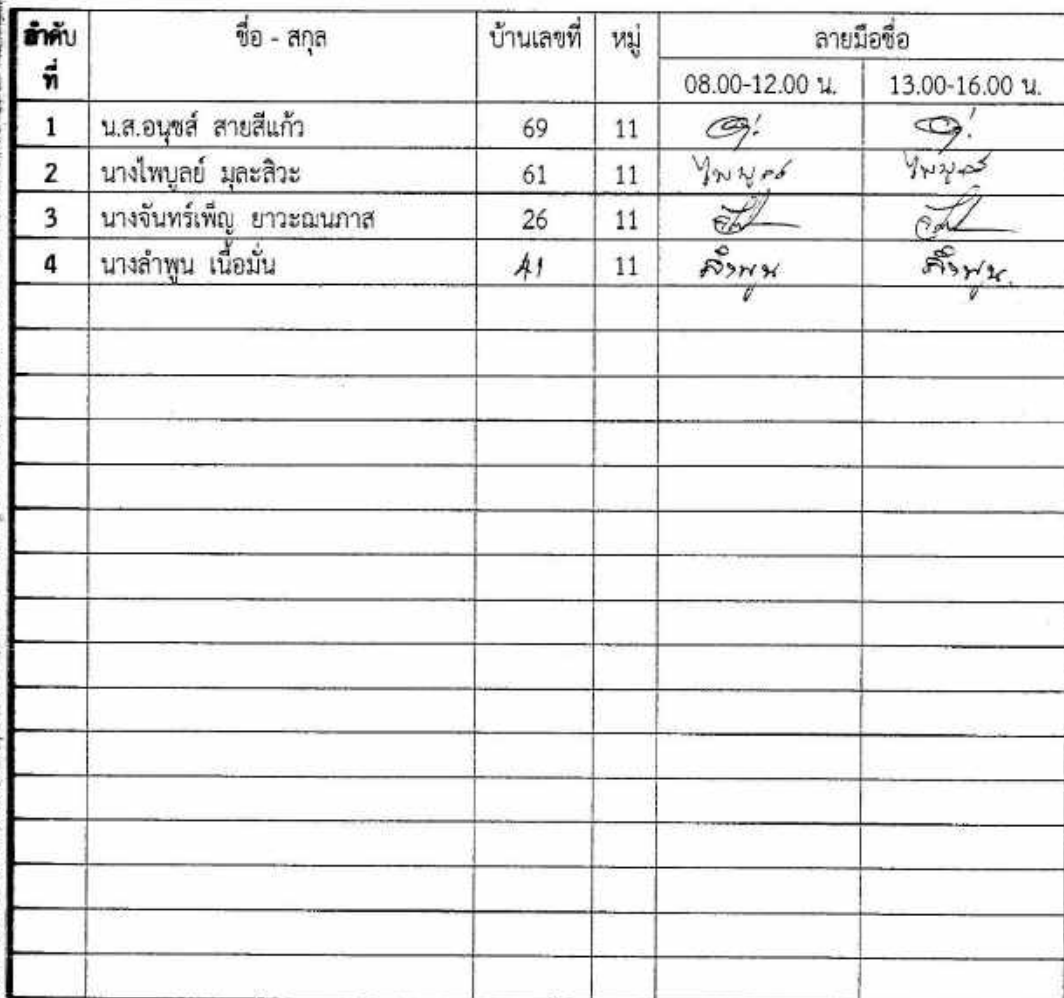 ลำดับที่ ชื่อ - สกุล บ้านเลขที่ หมู่ ลายมือชื่อ
08.00-12.00 น. 13.00-16.00 น.
1 น.ส.อนุชส์ สายสีแก้ว 69 11
2 นางไพบูลย์ มุละสิวะ 61 11 ไพบูลย์ ไพบูลย์
3 นางจันทร์เพ็ญ ยาวะฌนภาส 26 11
4 นางลำพูน เนื้อมั่น 41 11 ลำพูน ลำพูน